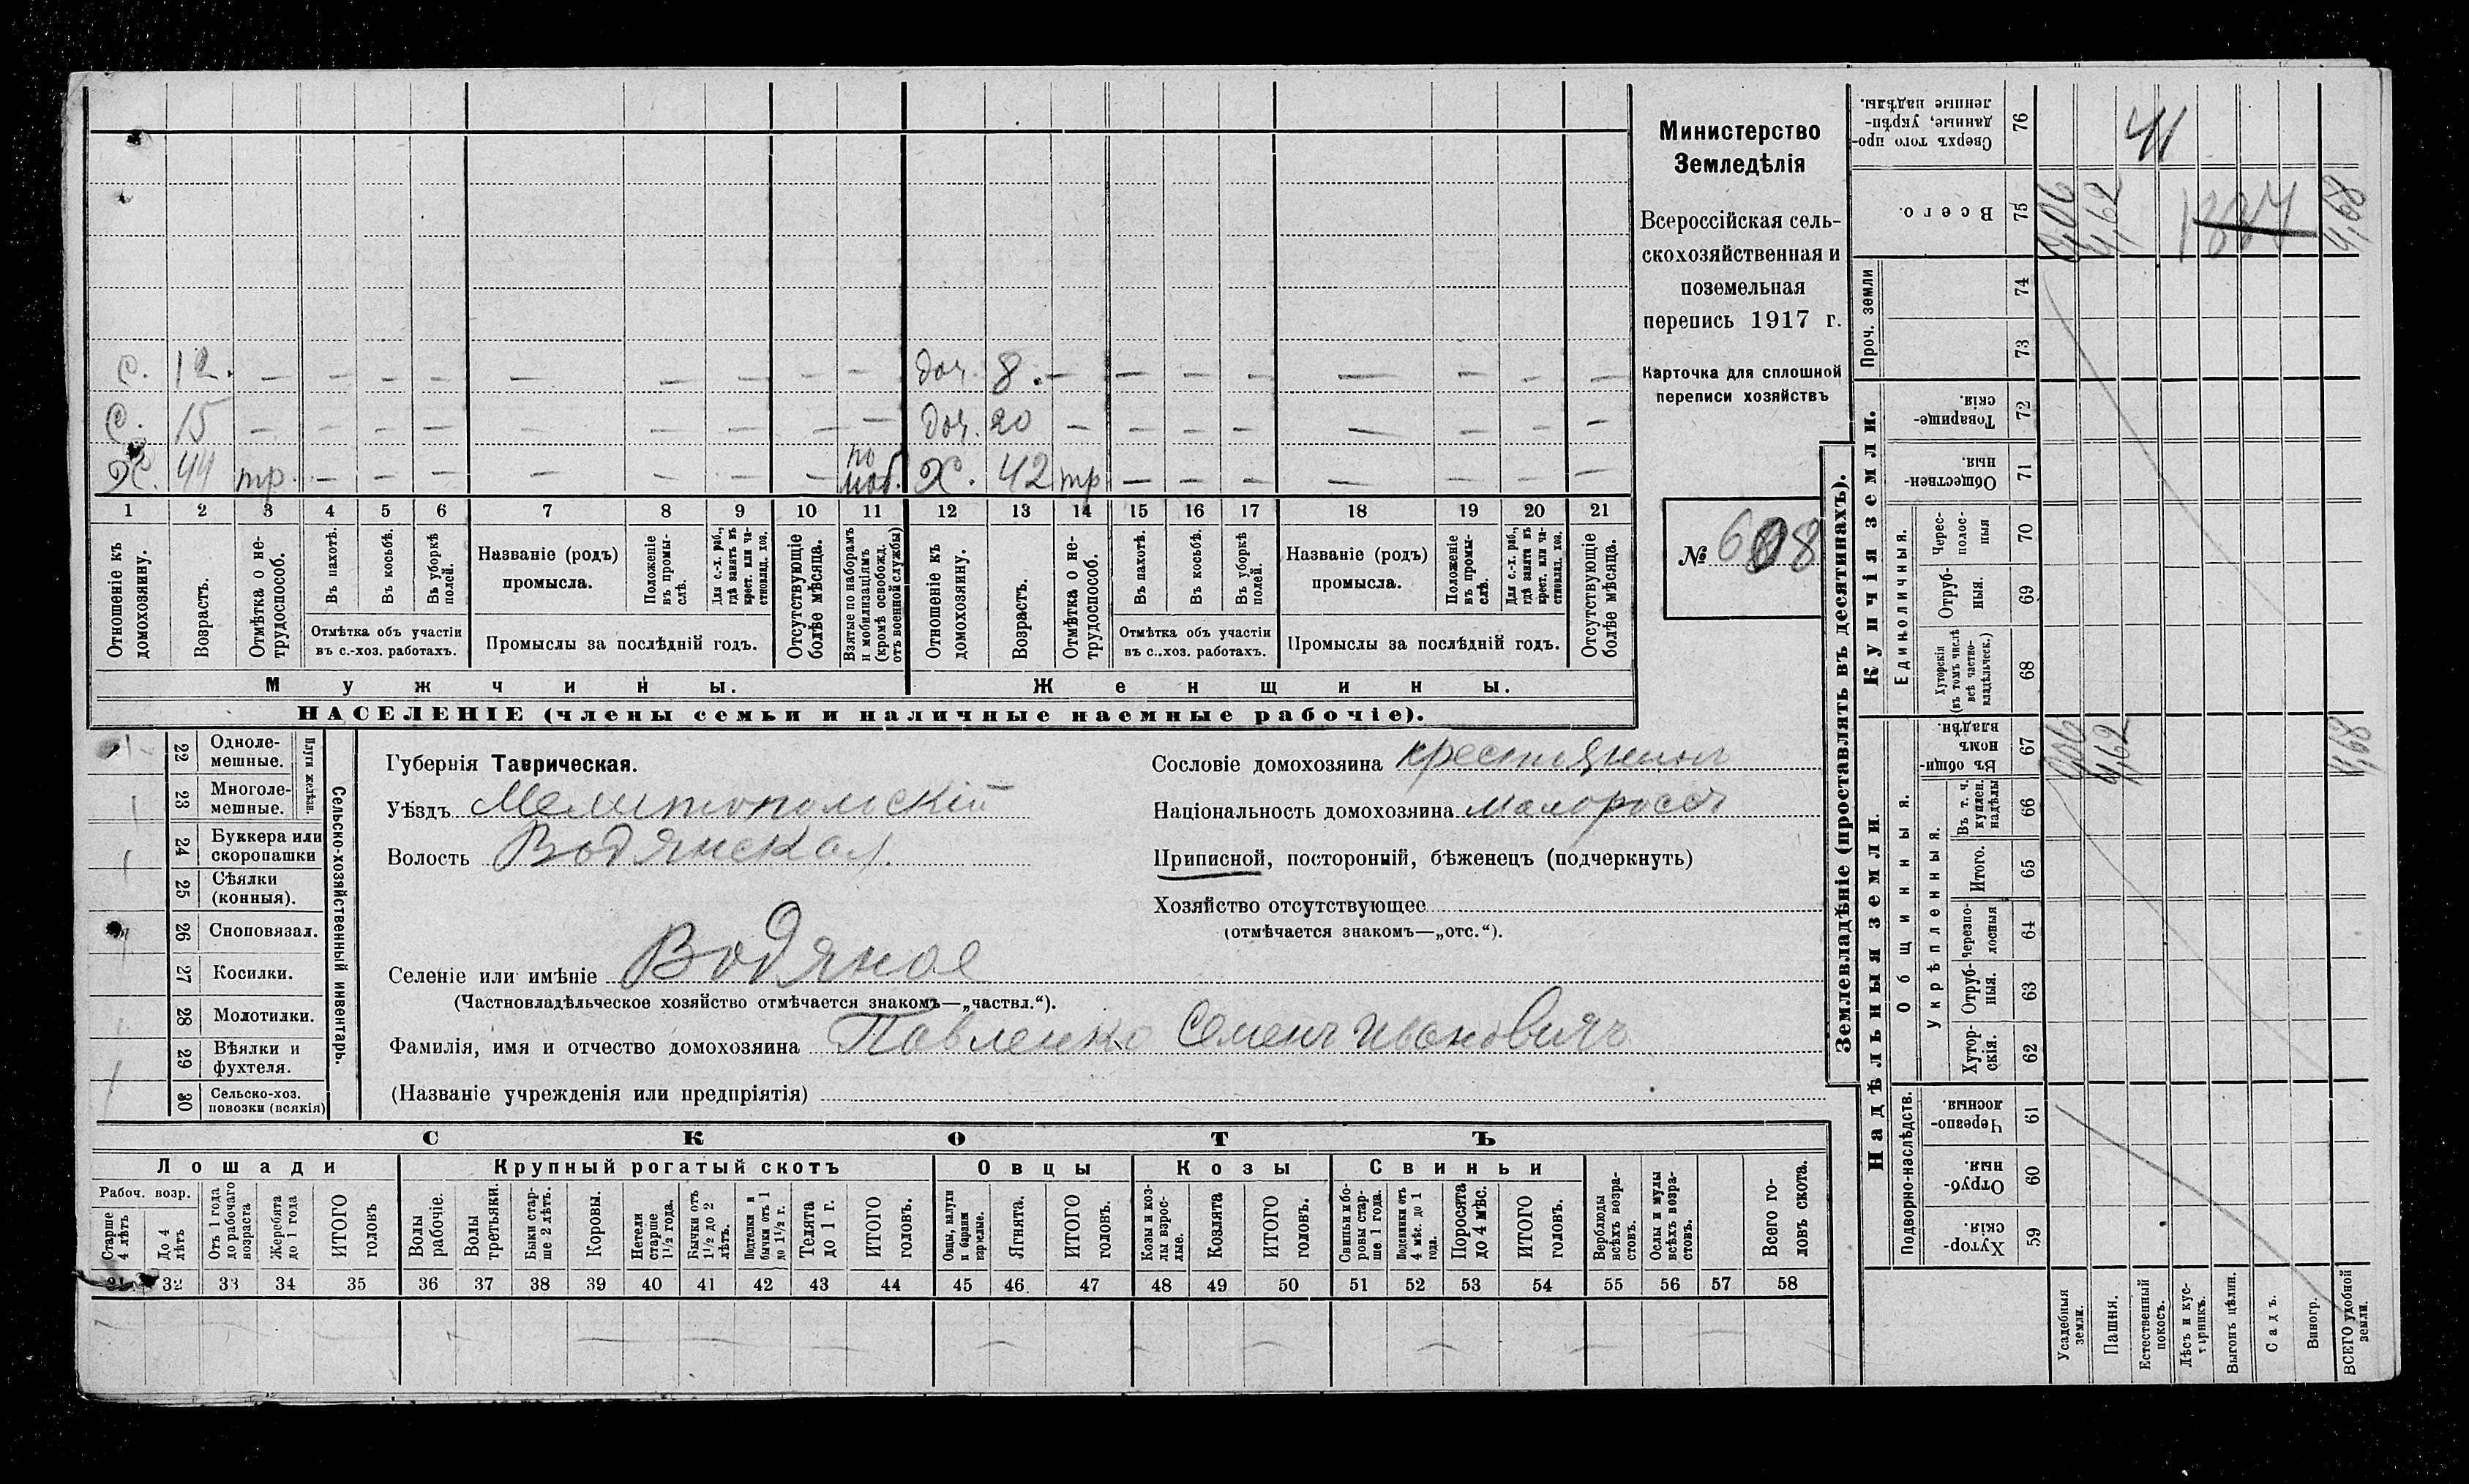 Министерство
Земледѣлія
Всероссійская сель-
скохозяйственная и
поземельная
перепись 1917 г.
Карточка для сплошной
переписи хозяйствъ
№ 608
с. 12. — — — — — — — — — доч. 8. — — — — — — — —
с. 15 — — — — — — — — — доч. 20 — — — — — — — —
Х. 44 тр. — — — — — — — по моб. Х. 42 тр — — — — — — —
1 2 3 4 5 6 7 8 9 10 11 12 13 14 15 16 17 18 19 20 21
Отношеніе къ домохозяину.
Возрастъ.
Отмѣтка о не-трудоспособ.
Въ пахотѣ.
Въ косьбѣ.
Въ уборкѣ полей.
Отмѣтка объ участіи въ с.-хоз. работахъ.
Названіе (родъ) промысла.
Положеніе въ промы-слѣ.
Для с.-х. раб., гдѣ занятъ въ крест. или ча-стновлад. хоз.
Промыслы за послѣдній годъ.
Отсутствующіе болѣе мѣсяца.
Взятые по наборамъ и мобилизаціямъ (кромѣ освобожд. отъ военной службы)
Отношеніе къ домохозяину.
Возрастъ.
Отмѣтка о не-трудоспособ.
Въ пахотѣ.
Въ косьбѣ.
Въ уборкѣ полей.
Отмѣтка объ участіи въ с..хоз. работахъ.
Названіе (родъ) промысла.
Положеніе въ промы-слѣ.
Для с.-х. раб., гдѣ занята въ крест. или ча-стновлад. хоз.
Промыслы за послѣдній годъ.
Отсутствующіе болѣе мѣсяца.
Мужчины.
Женщины.
НАСЕЛЕНІЕ (члены семьи и наличные наемные рабочіе).
22 Одноле-мешные.
23 Многоле-мешные.
Плуги желѣзн.
24 Буккера или скоропашки
25 Сѣялки (конныя).
26 Сноповязал.
27 Косилки.
28 Молотилки.
29 Вѣялки и фухтеля.
30 Сельско-хоз. повозки (всякія)
Сельско-хозяйственный инвентарь.
Губернія Таврическая.
Уѣздъ Мелитопольскій
Волость Водянская
Селеніе или имѣніе Водяное
(Частновладѣльческое хозяйство отмѣчается знакомъ—„частвл.“).
Фамилія, имя и отчество домохозяина Павленко Семенъ Ивановичъ
(Названіе учрежденія или предпріятія)
Сословіе домохозяина крестьянинъ
Національность домохозяина малороссъ
Приписной, посторонній, бѣженецъ (подчеркнуть)
Хозяйство отсутствующее
(отмѣчается знакомъ—„отс.“).
СКОТЪ
Лошади Крупный рогатый скотъ Овцы Козы Свиньи
Рабоч. возр.
Старше 4 лѣтъ
До 4 лѣтъ
Отъ 1 года до рабочаго возраста
Жеребята до 1 года
ИТОГО головъ
Волы рабочіе.
Волы третьяки.
Быки стар-ше 2 лѣтъ.
Коровы.
Нетели старше 1½ года.
Бычки отъ 1½ до 2 лѣтъ.
Подтелки и бычки отъ 1 до 1½ г.
Телята до 1 г.
ИТОГО головъ.
Овцы, валухи и бараны взрослые.
Ягнята.
ИТОГО головъ.
Козы и коз-лы взрос-лые.
Козлята
ИТОГО головъ.
Свиньи и бо-ровы стар-ше 1 года.
Подсвинки отъ 4 мѣс. до 1 года.
Поросята до 4 мѣс.
ИТОГО головъ.
Верблюды всѣхъ возра-стовъ.
Ослы и мулы всѣхъ возра-стовъ.
Всего го-ловъ скота.
31 32 33 34 35 36 37 38 39 40 41 42 43 44 45 46 47 48 49 50 51 52 53 54 55 56 57 58
Землевладѣніе (проставлять въ десятинахъ).
Надѣльныя земли.
Купчія земли.
Проч. земли
Подворно-наслѣдств.
Общинныя.
Укрѣпленныя.
Единоличныя.
Сверхъ того про-данные, укрѣп-ленные надѣлы. 76 41
Всего. 75 0,06 4,62 1887 4,68
74
73
Товарище-скія. 72
Обществен-ныя. 71
Черес-полос-ныя 70
Отруб-ныя. 69
Хуторскія (въ томъ числѣ всѣ частно-владѣльческ.) 68
Въ общин-номъ владѣн. 67 0,06 4,62 4,68
Въ т. ч. куплен. надѣлы 66
Итого. 65
Черезпо-лосныя 64
Отруб-ныя. 63
Хутор-скія. 62
Черезпо-лосныя. 61
Отруб-ныя. 60
Хутор-скія. 59
Усадебныя земли.
Пашня.
Естественный покосъ.
Лѣсъ и кус-тарникъ.
Выгонъ цѣлин.
Садъ.
Виногр.
ВСЕГО удобной земли.